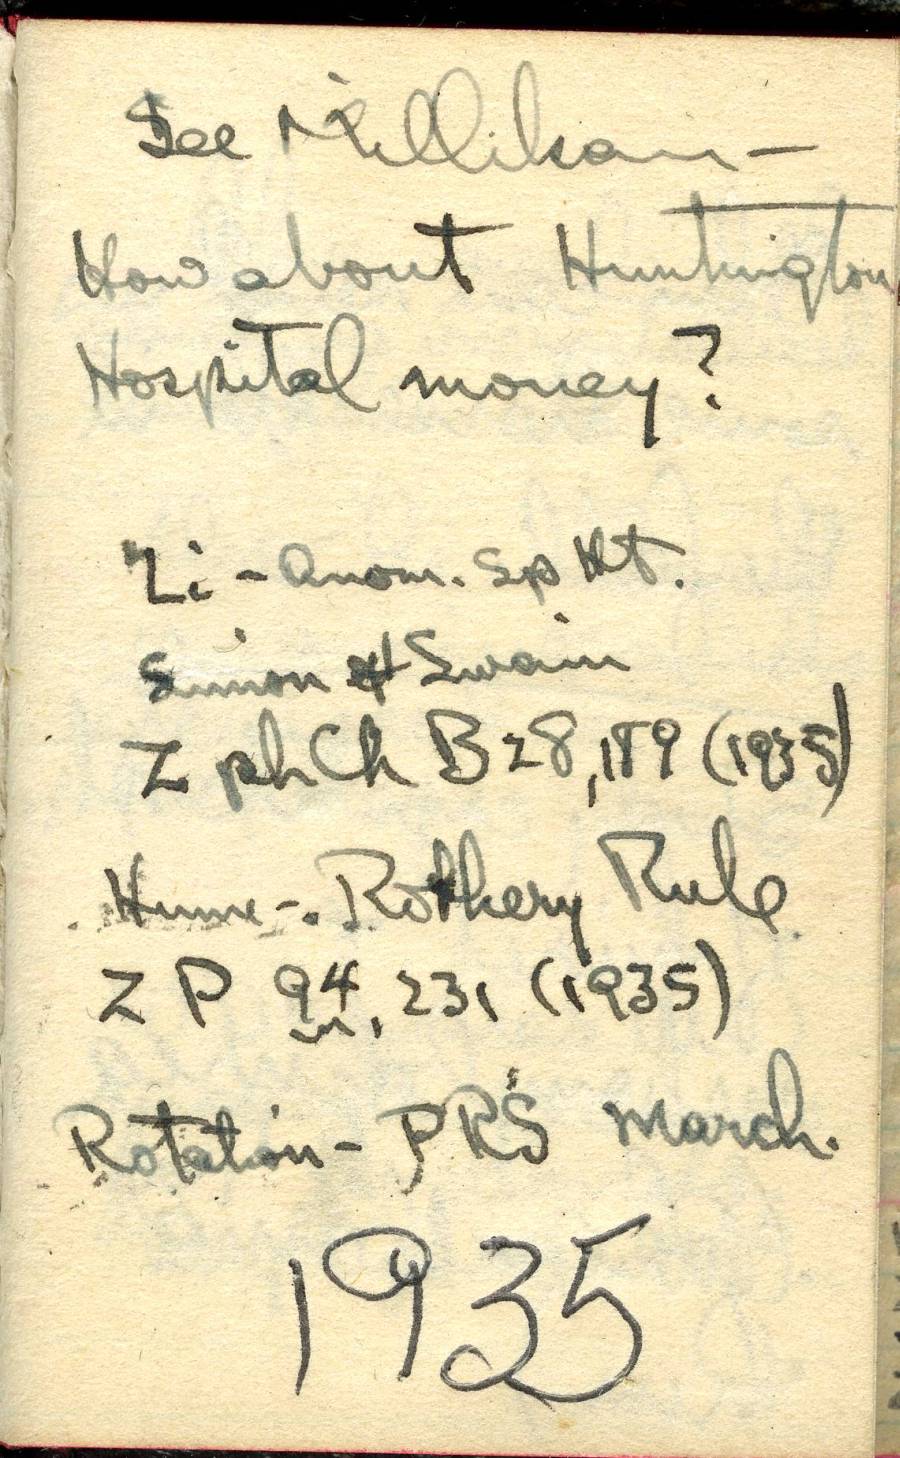 See Millikan —
How about Huntington
Hospital money?
Li - Anom. Sp Ht.
Simon & Swain
Z ph Ch B 28, 189 (1935)
Hume-Rothery Rule
Z P 94, 231 (1935)
Rotation - PRS March.
1935